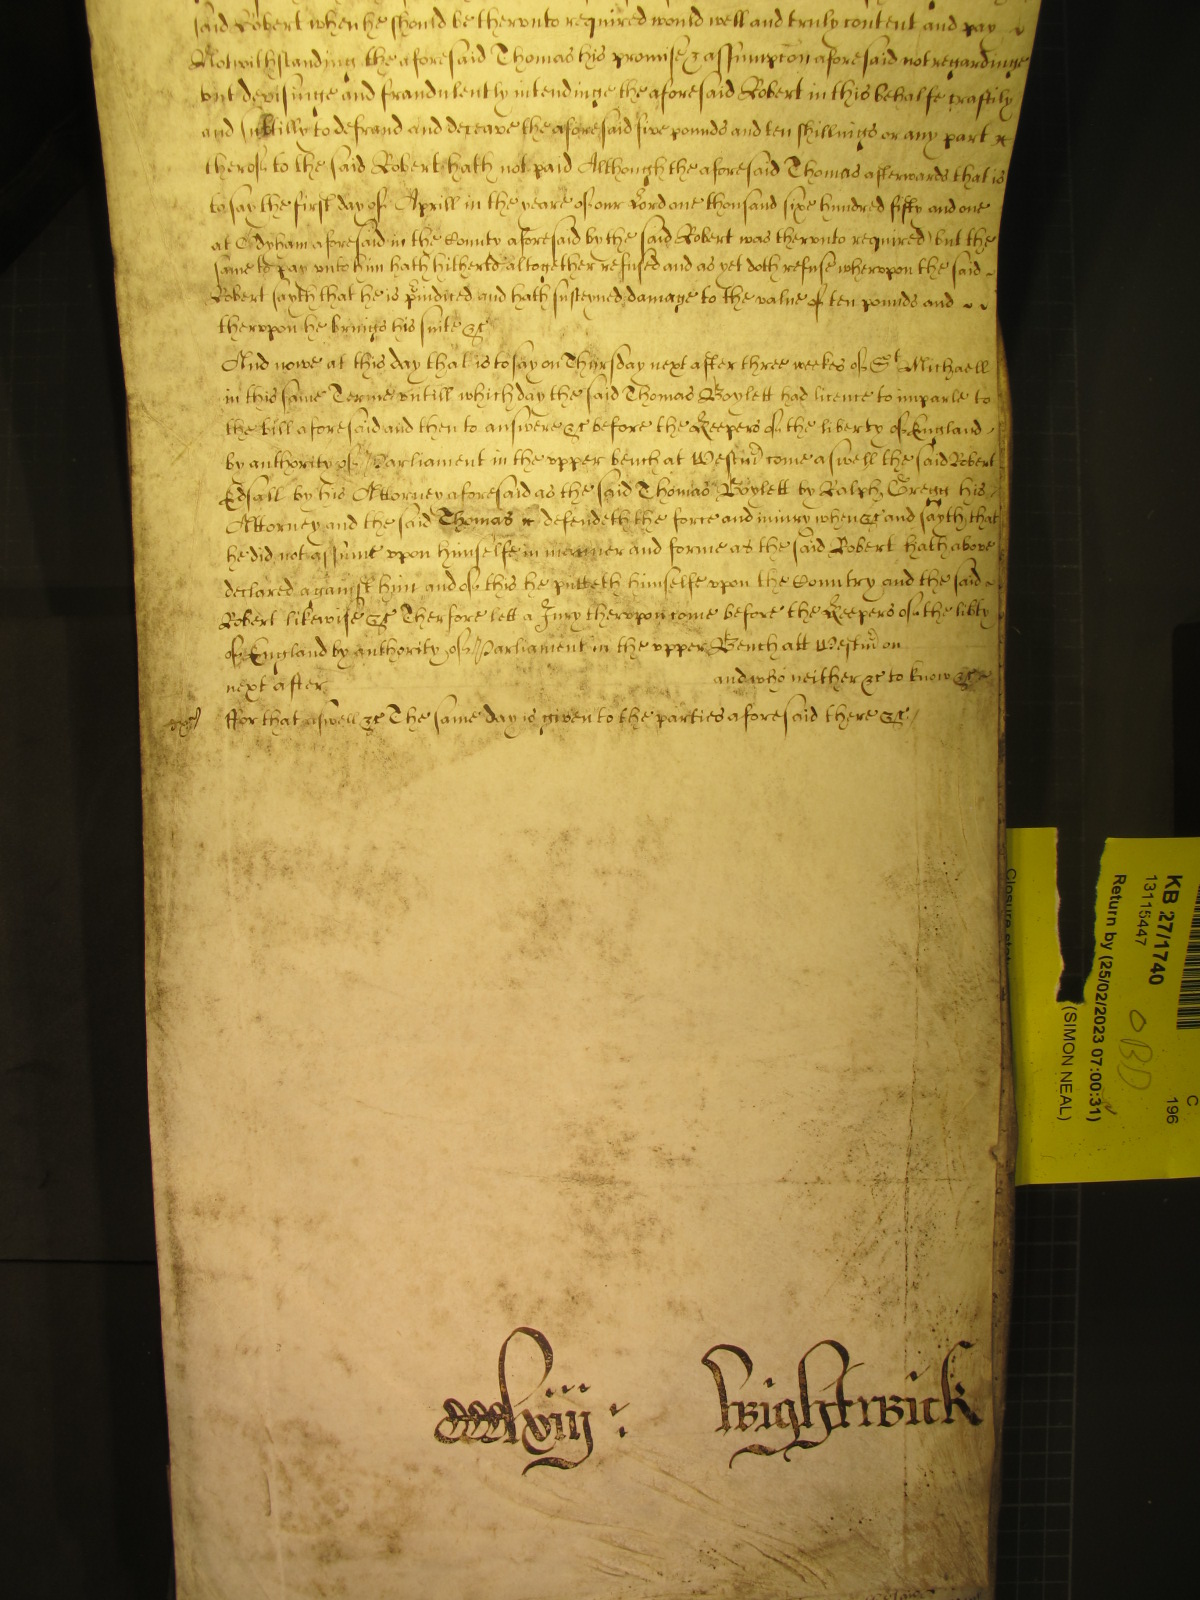 said Robert when he should be therevnto required would well and truly content and pay
Notwithstanding the aforesaid Thomas his promise & assumpcon aforesaid not regardinge
but devisinge and fraudulently intendinge the aforesaid Robert in this behalfe craftily
and subtilly to defraud and deceave the aforesaid five pounds and ten shillings or any part
therof to the said Robert hath not paid Although the aforesaid Thomas afterwards that is
to say the first day of Aprill in the yeare of our Lord one thousand sixe hundred fifty and one
at Odyham aforesaid in the County aforesaid by the said Robert was therevnto required) but the
same to pay vnto him hath hitherto altogether refused and as yet doth refuse wherevpon the said
Robert sayth that he is piudiced and hath susteyned damage to the value of ten pounds and
therevpon he brings his suite &c
And nowe at this day that is to say on Thursday next after three weekes of St Michaell
in this same Terme vntill which day the said Thomas Boylett had licence to imparle to
the bill aforesaid and then to answere &c before the Keepers of the liberty of England
by authority of Parliament in the vpper bench at Westm come aswell the said Robert
Edsall by his Attorney aforesaid as the said Thomas Boylett by Ralph Gregg his
Attorney and the said Thomas defendeth the force and iniury when &c and sayth that
he did not assume vpon himselfe in manner and forme as the said Robert hath above
declared against him and of this he putteth himselfe vpon the Countrey and the said
Robert likewise &c Therfore lett a Jury therevpon come before the Keepers of the libty
of England by authority of Parliament in the vpper Bench att Westm on
next after and who neither &c to know &c
ffor that aswell &c The same day is given to the parties aforesaid there &c
ccclxviij : Wightwick
KB 27/1740
13115447
Return by (25/02/2023 07:00:31)
(SIMON NEAL)
C
196
OBD
Closure